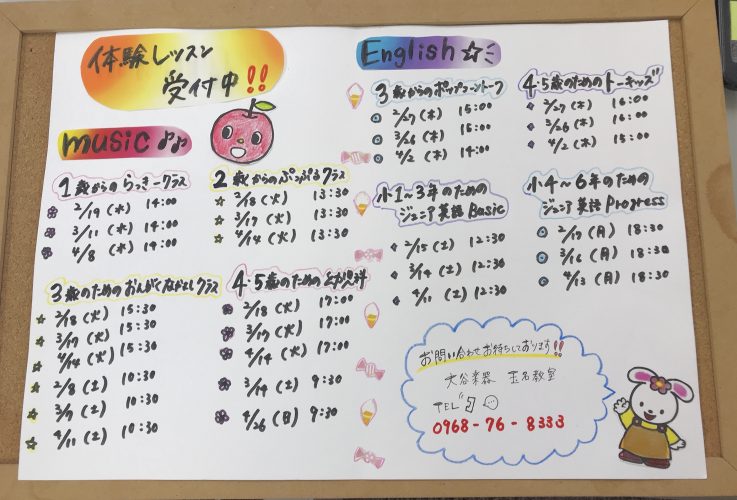 体験レッスン
受付中!!
music♪♪
1歳からのらっきークラス
2/19（水） 14:00
3/11（水） 14:00
4/8（水） 14:00
2歳からのぷっぷるクラス
2/18（火） 13:30
3/17（火） 13:30
4/14（火） 13:30
3歳のためのおんがくなかよしクラス
2/18（火） 15:30
3/17（火） 15:30
4/14（火） 15:30
2/8（土） 10:30
3/7（土） 10:30
4/11（土） 10:30
4・5歳のための幼児科
2/18（火） 17:00
3/17（火） 17:00
4/14（火） 17:00
3/14（土） 9:30
4/26（日） 9:30
English☆
3歳からのポップコーントーク
2/27（木） 15:00
3/26（木） 15:00
4/2（木） 14:00
4・5歳のためのトーキッズ
2/27（木） 16:00
3/26（木） 16:00
4/2（木） 15:00
小1～3年のための
ジュニア英語Basic
2/15（土） 12:30
3/14（土） 12:30
4/11（土） 12:30
小4～6年のための
ジュニア英語Progress
2/17（月） 18:30
3/16（月） 18:30
4/13（月） 18:30
お問い合わせお待ちしております!!
大谷楽器 玉名教室
TEL
0968-76-8333